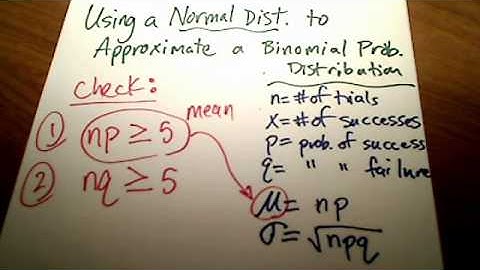 Using a Normal Dist. to
Approximate a Binomial Prob.
Distribution
Check:
① np ≥ 5
② nq ≥ 5
mean
n = # of trials
x = # of successes
p = prob. of success
q = " " failure
μ = np
σ = √npq